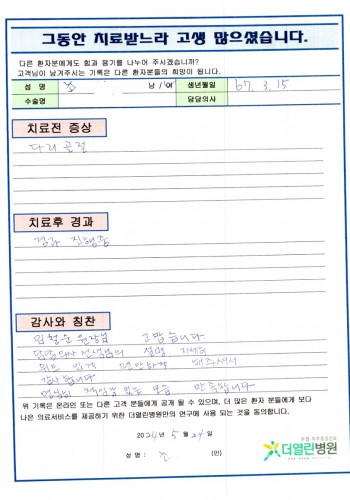 그동안 치료받느라 고생 많으셨습니다.
다른 환자분에게도 힘과 용기를 나누어 주시겠습니까?
고객님이 남겨주시는 기록은 다른 환자분들의 희망이 됩니다.
성 명 남 / 여 생년월일 67. 3. 15
수술명 담당의사
치료전 증상
다리 골절
치료후 경과
경과 진행중
감사와 칭찬
원장님 고맙습니다
담당의사 선생님의 설명 자세히
감사합니다
있는 모습 만족합니다
위 기록은 온라인 또는 다른 고객 분들에게 공개 될 수 있으며, 더 많은 환자 분들에게 보다
나은 의료서비스를 제공하기 위한 더열린병원만의 연구에 사용 되는 것을 동의합니다.
2024년 5월 24일
성 명 : (인)
더열린병원